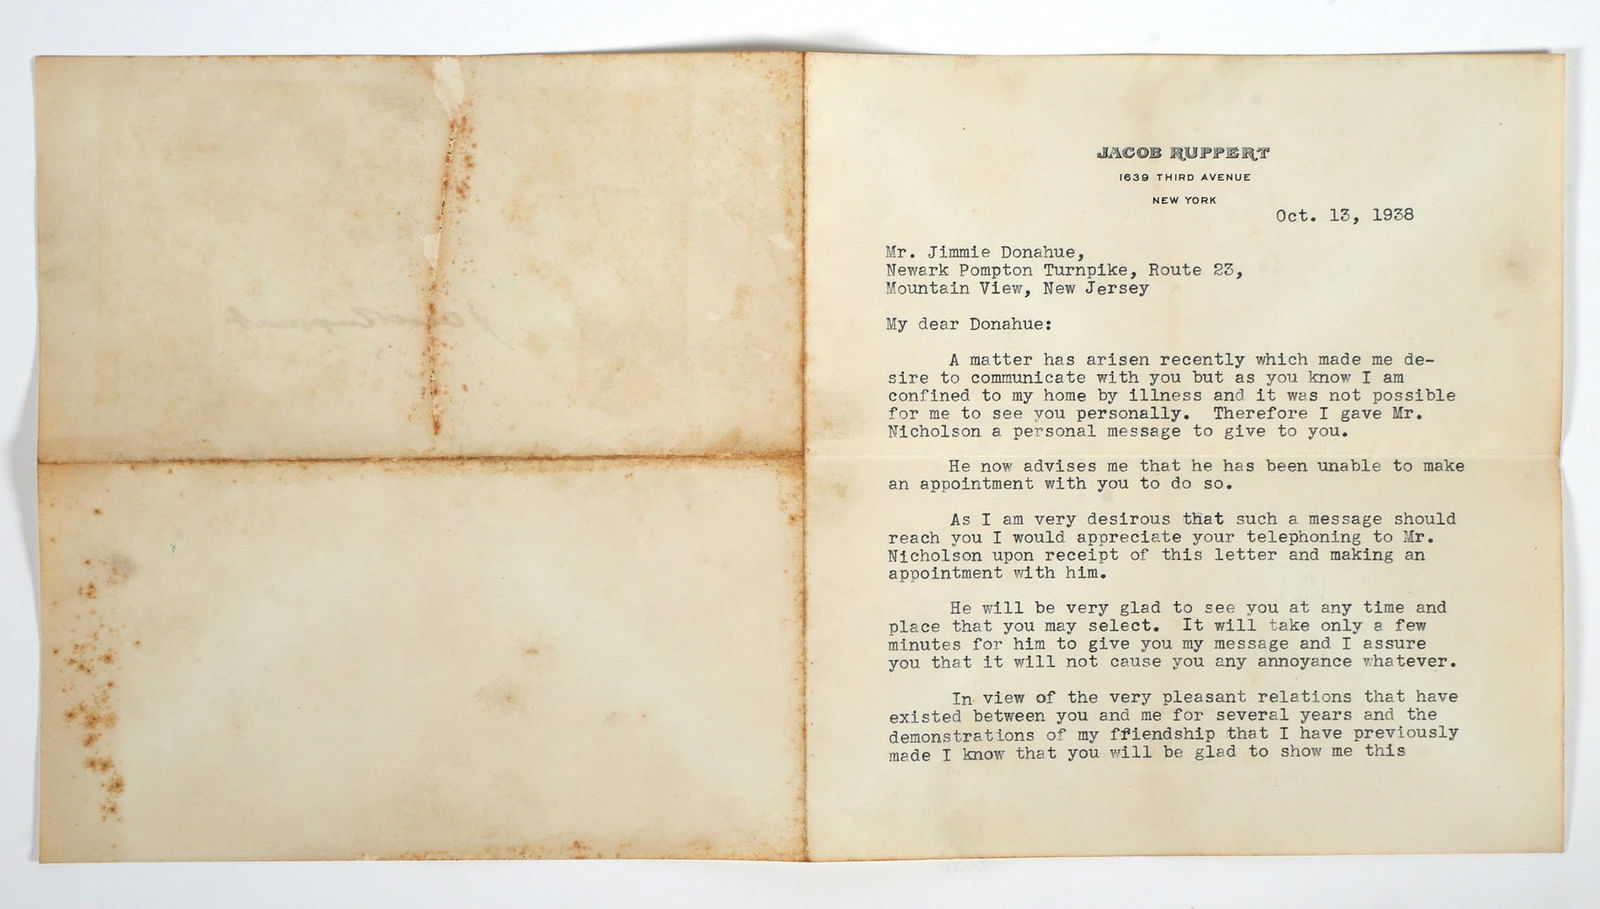 JACOB RUPPERT
1639 THIRD AVENUE
NEW YORK
Oct. 13, 1938
Mr. Jimmie Donahue,
Newark Pompton Turnpike, Route 23,
Mountain View, New Jersey
My dear Donahue:
A matter has arisen recently which made me de-
sire to communicate with you but as you know I am
confined to my home by illness and it was not possible
for me to see you personally. Therefore I gave Mr.
Nicholson a personal message to give to you.
He now advises me that he has been unable to make
an appointment with you to do so.
As I am very desirous that such a message should
reach you I would appreciate your telephoning to Mr.
Nicholson upon receipt of this letter and making an
appointment with him.
He will be very glad to see you at any time and
place that you may select. It will take only a few
minutes for him to give you my message and I assure
you that it will not cause you any annoyance whatever.
In view of the very pleasant relations that have
existed between you and me for several years and the
demonstrations of my ffiendship that I have previously
made I know that you will be glad to show me this